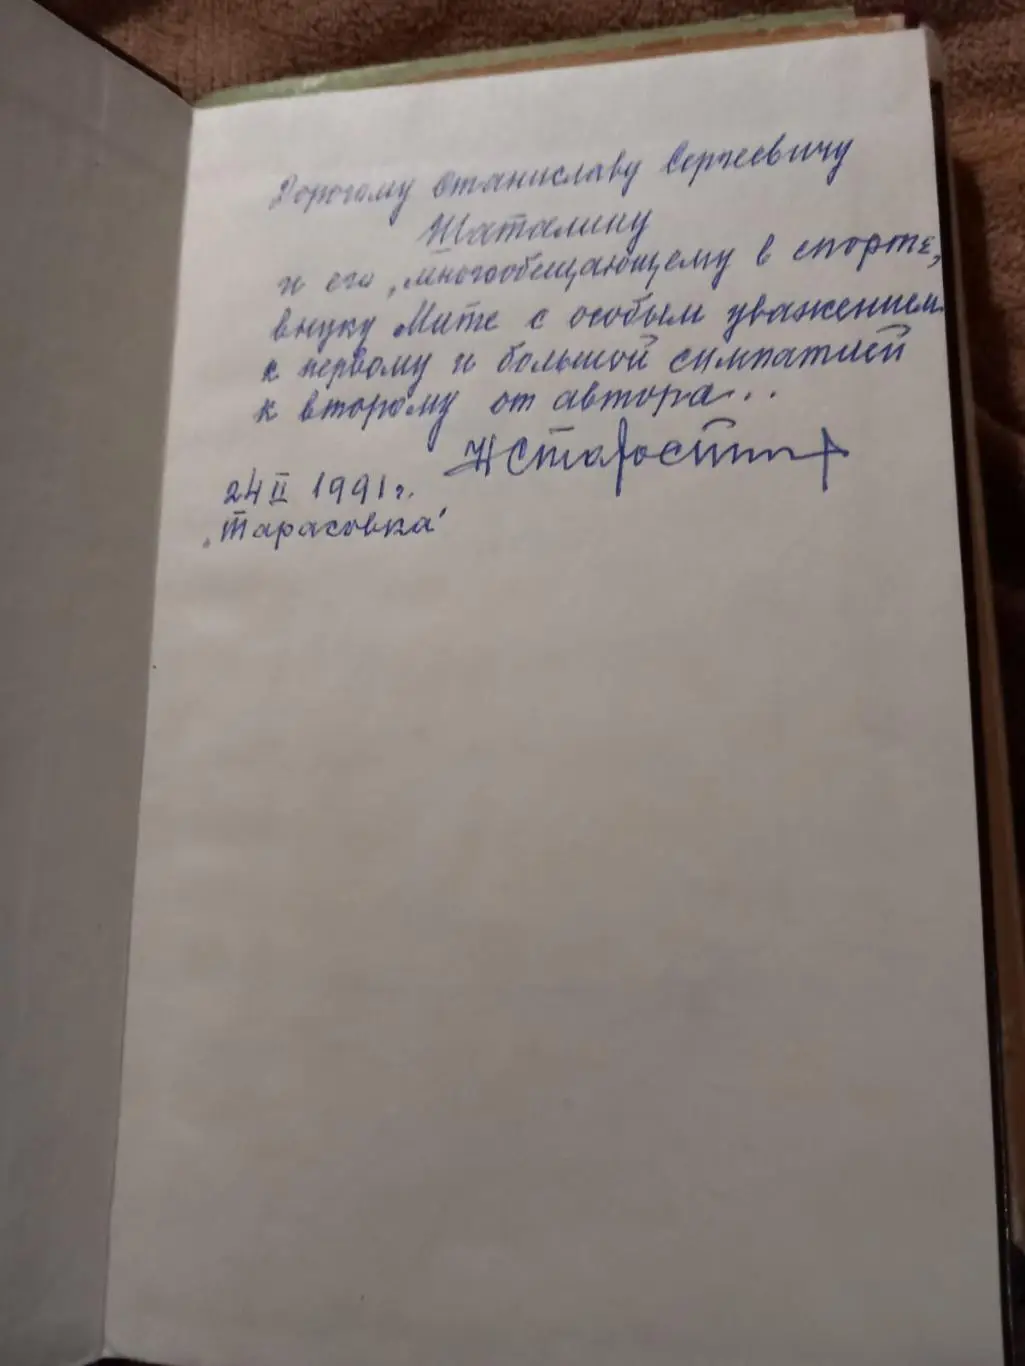 Дорогому Станиславу Сергеевичу
Шаталину
и его „многообещающему в спорте,
внуку Мите с особым уважением
к первому и большой симпатией
к второму от автора...
НСтаростин
24 II 1991 г.
„Тарасовка"